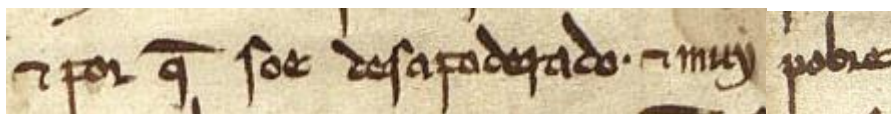 ⁊ por q̄ soe desapoderado. ⁊ muy pobre